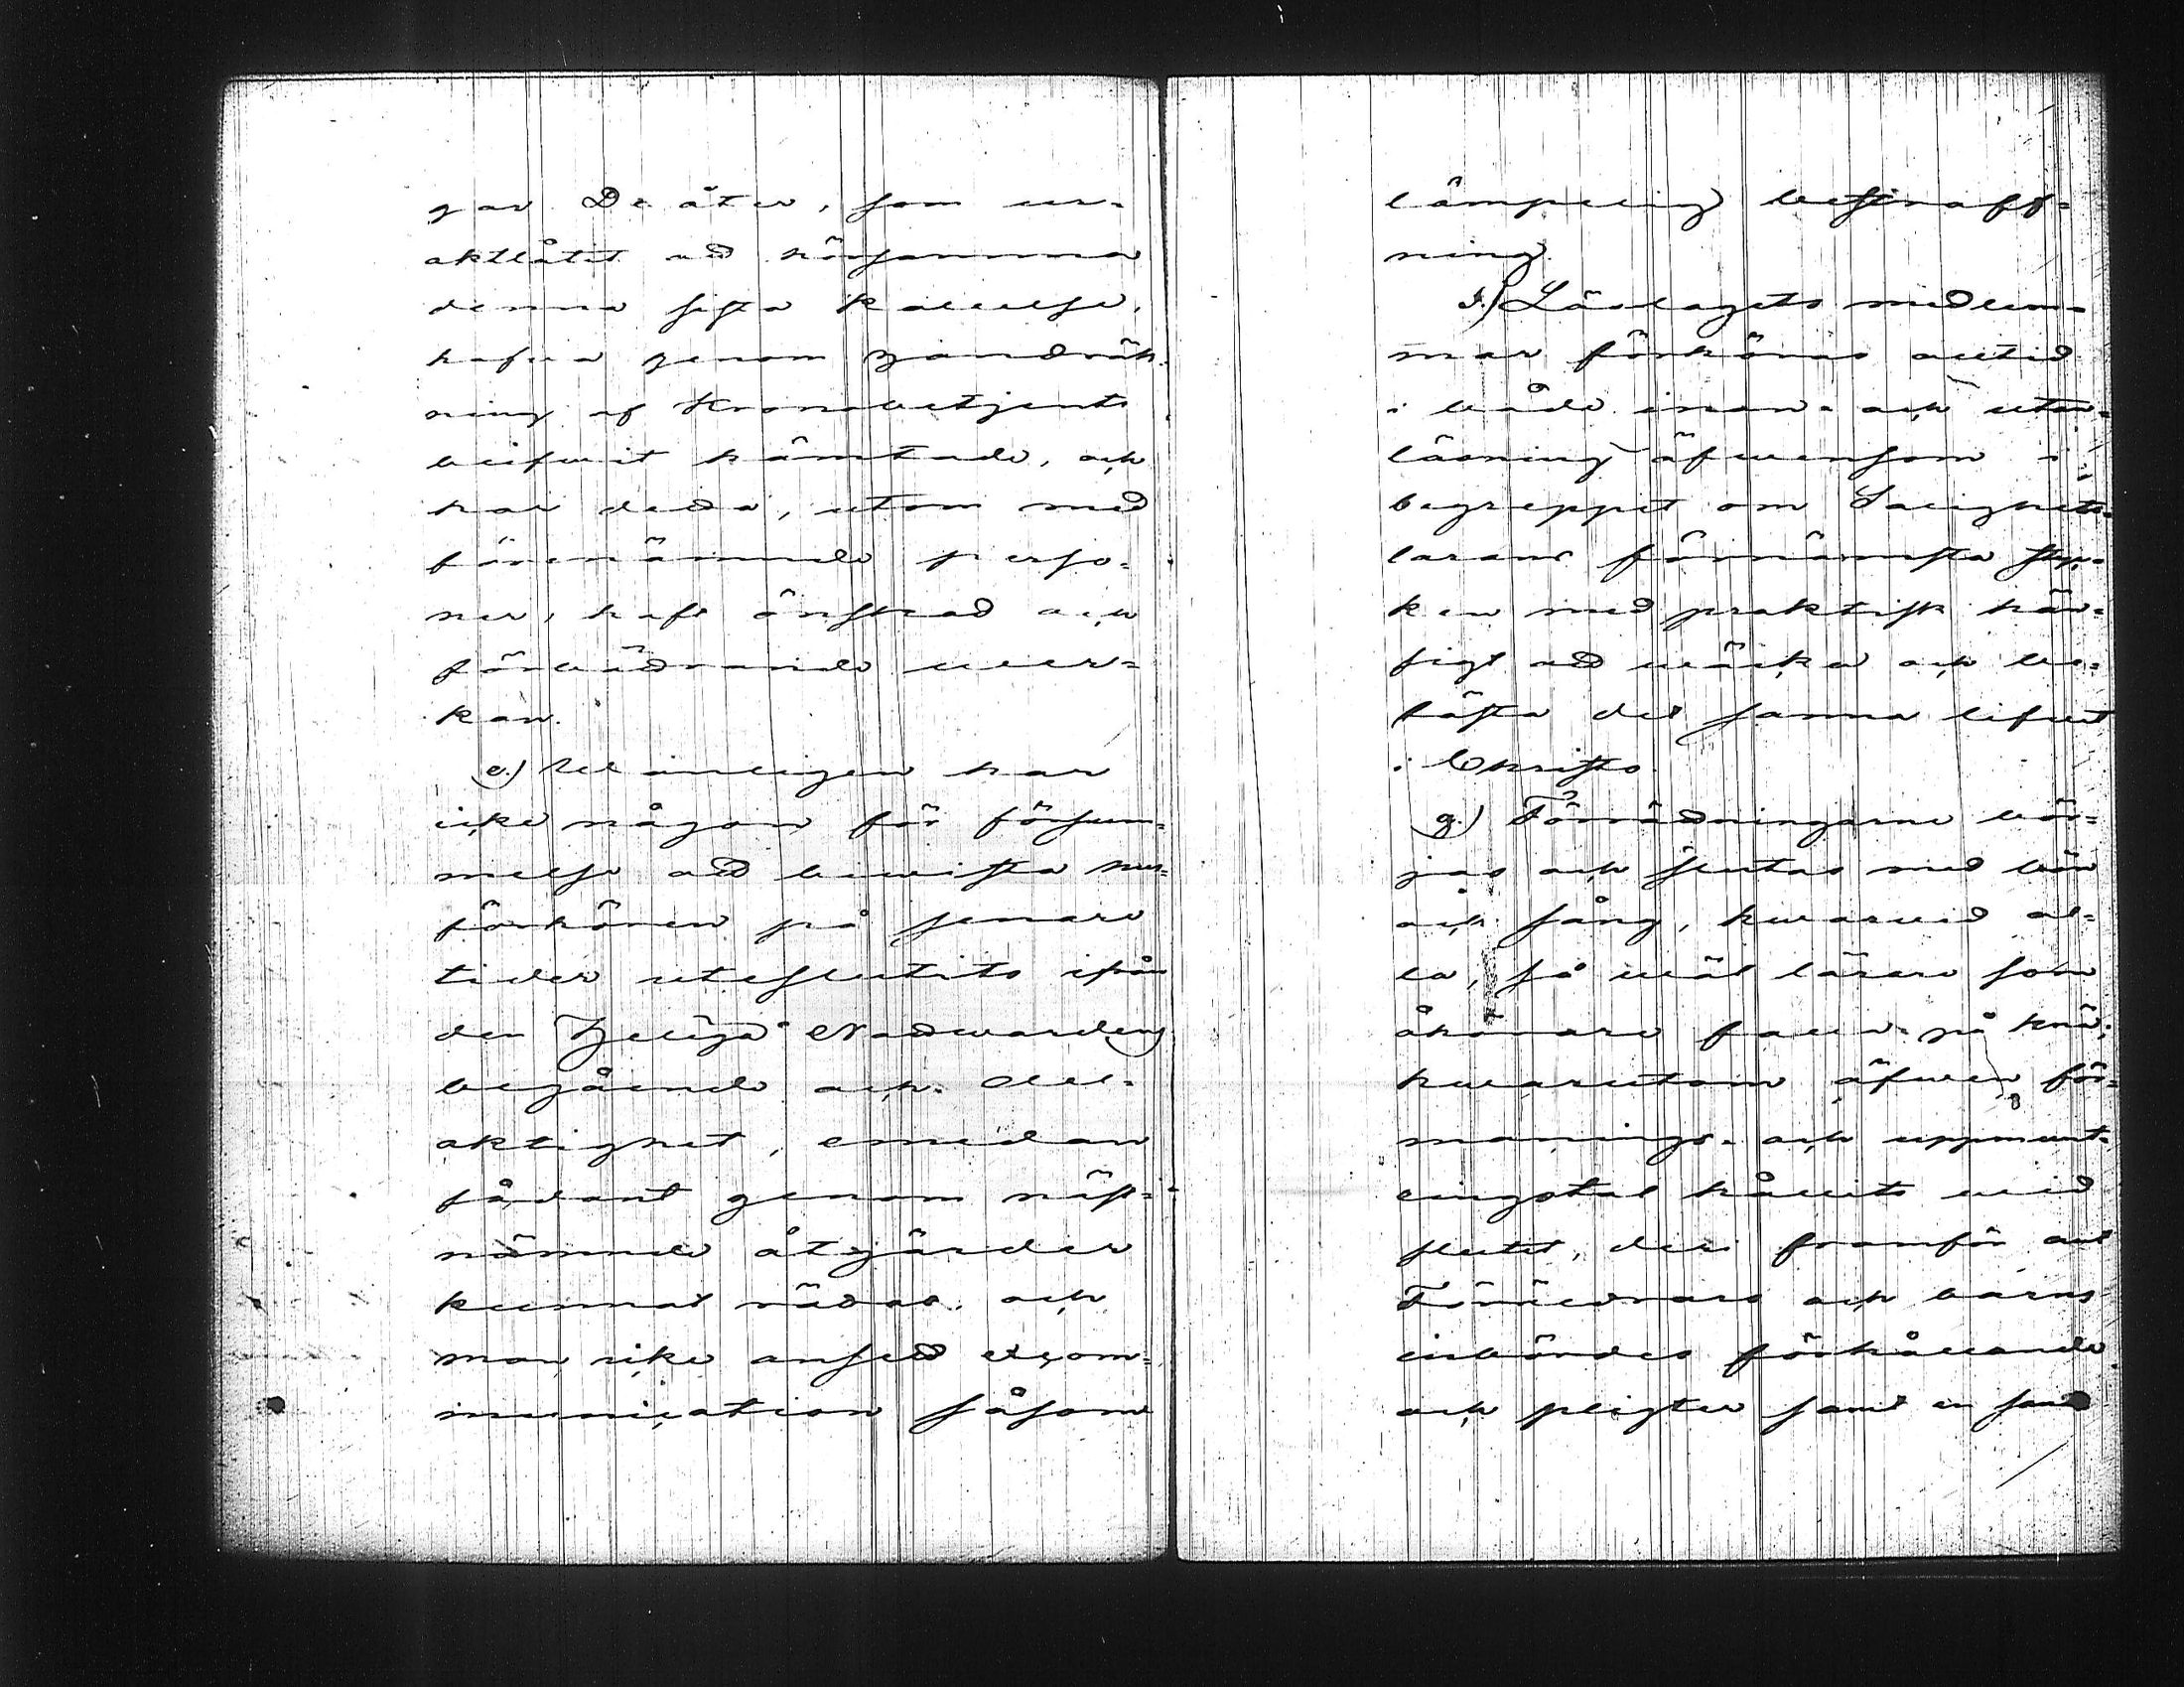 gar. De åter, som ur=
aktlåtit att hörsamma
denna sista kallelse,
hafva genom Handräk-
ning af Kronobetjente
blifvit hämtade, och
har detta, utom med
förenämnde perso=
ner, haft önskad och
förbättrande ver=
kan.
e.) Vanligen har
icke någon för försum=
melse att bevista hus=
förhören på senare
tider uteslutits ifrån
den Heliga Nattvardens
begående och del=
aktighet, emedan
sådant genom näst=
nämnde åtgärder
kunnat rättas, och
man icke ansett excom=
munication såsom
lämplig bestraff=
ning.
f.) Läslagets medlem=
mar förhöras alltid
i både innan- och utan=
läsning äfvensom i
begreppet om Salighets=
larans förnämsta styc=
ken med praktisk hän=
sigt att väcka och be=
fästa det sanna lifvet
i Christo.
g.) Förrättningarne bör=
jas och slutas med bön
och sång, hvarvid al=
la, så väl lärare som
åhörare falla på knä;
hvarutom äfven för=
manings- och uppmunt=
ringstal hållits vid
slutet, deri framför allt
Föräldrars och barns
inbördes förhållande
och pligter samt en sann